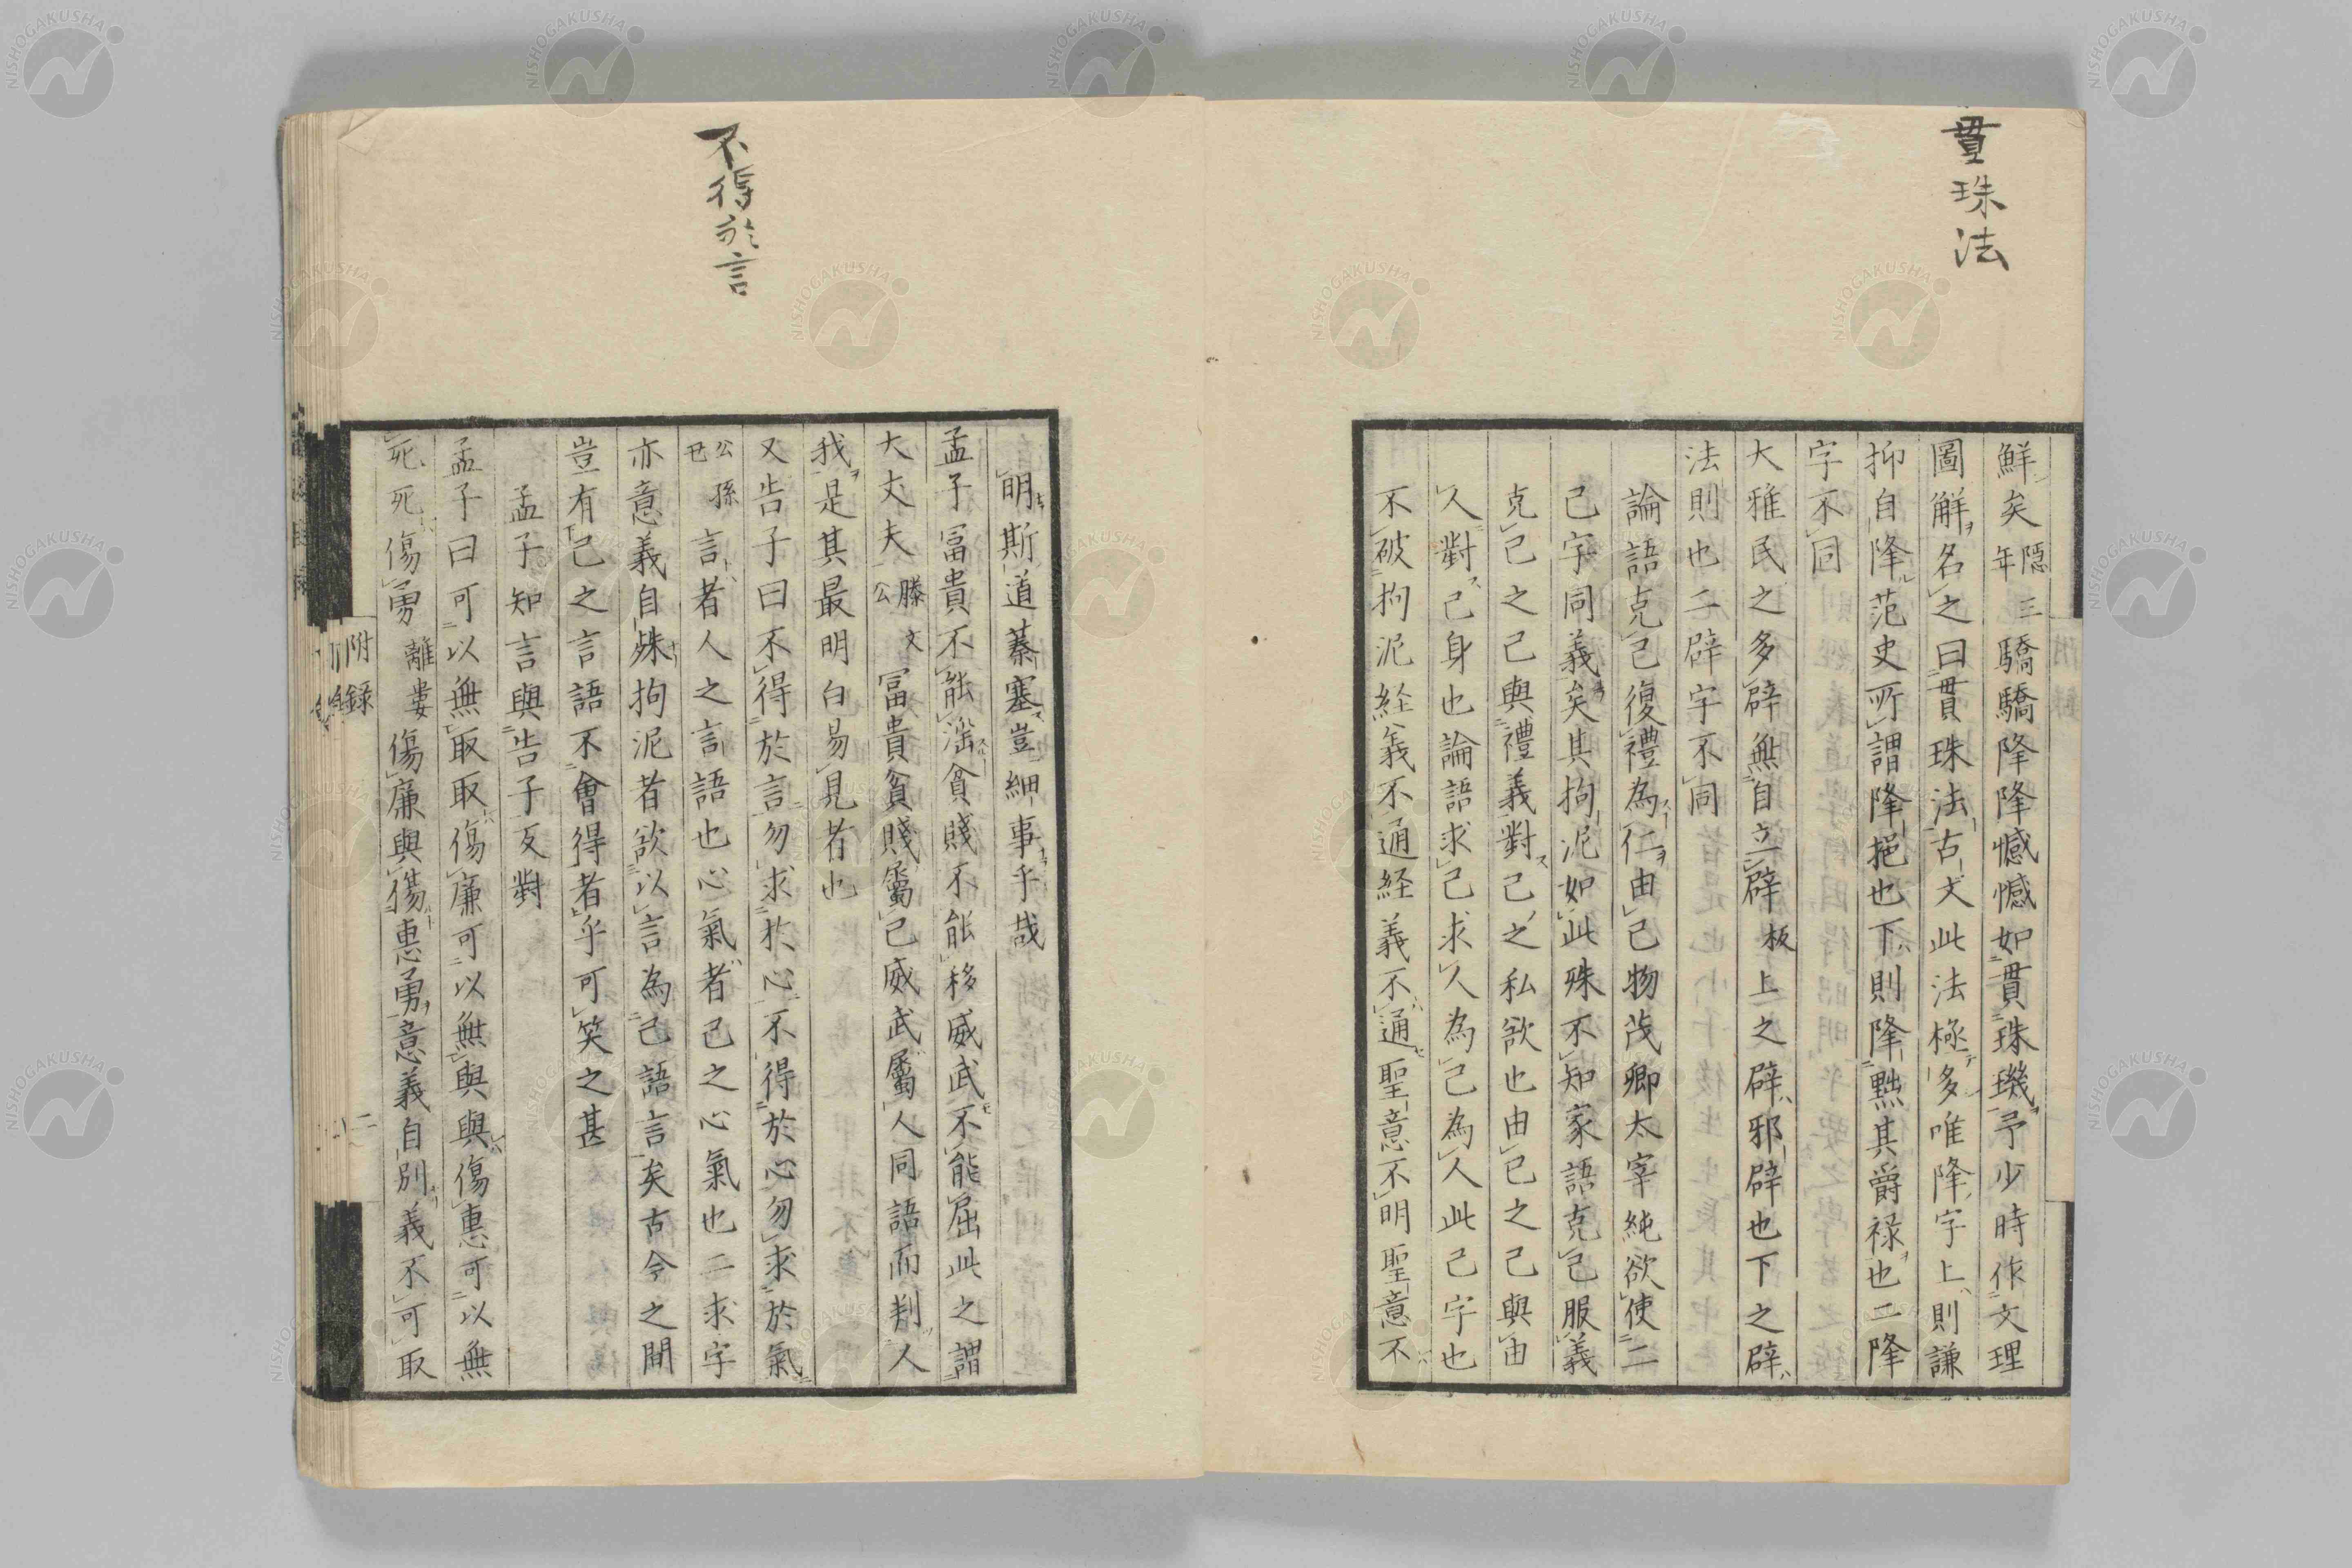 貫珠法
鮮矣隱三年驕驕降降憾憾如貫珠璣予少時作文理
圖解名之曰貫珠法古文此法極多唯降字上則謙
抑自降范史所謂降挹也下則降黜其爵禄也二降
字不同
大雅民之多辟無自立辟板上之辟邪辟也下之辟
法則也二辟字不同
論語克己復禮為仁由己物茂卿太宰純欲使二
己字同義矣其拘泥如此殊不知家語克己服義
克己之己與禮義對己之私欲也由己之己與由
人對己身也論語求己求人為己為人此己字也
不破拘泥経義不通経義不通聖意不明聖意不
不得於言
明斯道蓁塞豈細事乎哉
孟子冨貴不能滛貧賤不能移威武不能屈此之謂
大丈夫滕文公冨貴貧賤屬己威武屬人同語而判人
我是其最明白易見者也
又告子曰不得於言勿求於心不得於心勿求於氣
公孫丑言者人之言語也心氣者己之心氣也二求字
亦意義自殊拘泥者欲以言為己語言矣古今之間
豈有己之言語不會得者乎可笑之甚
孟子知言與告子反對
孟子曰可以無取取傷廉可以無與與傷惠可以無
死死傷勇離婁傷廉與傷惠勇意義自別義不可取
附録
二
NISHOGAKUSHA